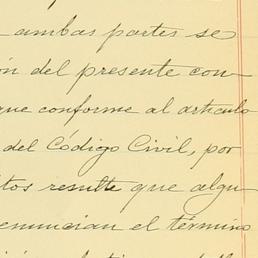 ambas partes se
ón del presente con-
que conforme al artículo
del Código Civil, por
tos resulte que algu-
enuncian el término